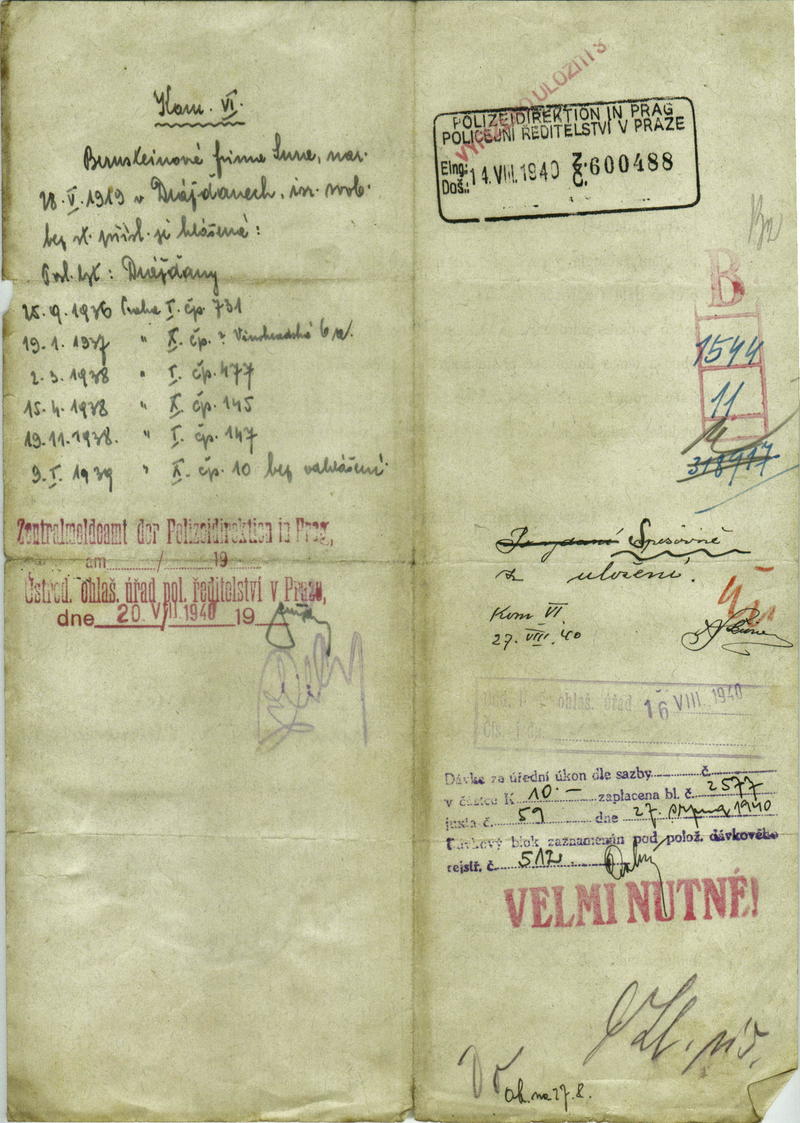 Kom. VI.
nar.
28.V.1919 v Drážďanech, isr. svob.
bez st. přísl. je hlášena:
Posl. byt: Drážďany
25.9.1936 Praha I. čp. 731
19.1.1937 " X. čp. ? Vinohradská 6 a.
2.3.1938 " I. čp. 477
15.4.1938 " X. čp. 145
19.11.1938. " I. čp. 147
9.I.1939 " X. čp. 10 bez odhlášení
Zentralmeldeamt der Polizeidirektion in Prag,
am / 19
Ústřed. ohlaš. úřad pol. ředitelství v Praze,
dne 20 VIII 1940 19
ULOŽITI
POLIZEIDIREKTION IN PRAG
POLICEJNÍ ŘEDITELSTVÍ V PRAZE
Elng.: 14.VIII.1940 Z. 600488
Doš.: Č.
B
1544
11
318917
z uložení.
Kom VI
27.VIII.40
ohlaš. úřad 16 VIII 1940
Dávka za úřední úkon dle sazby č.
v částce K 10.- zaplacena bl. č. 2577
juxta č. 59 dne 27. srpna 1940
Dávkový blok zaznamenán pod polož. dávkového
rejstř. č. 512.
VELMI NUTNÉ!
27.8.